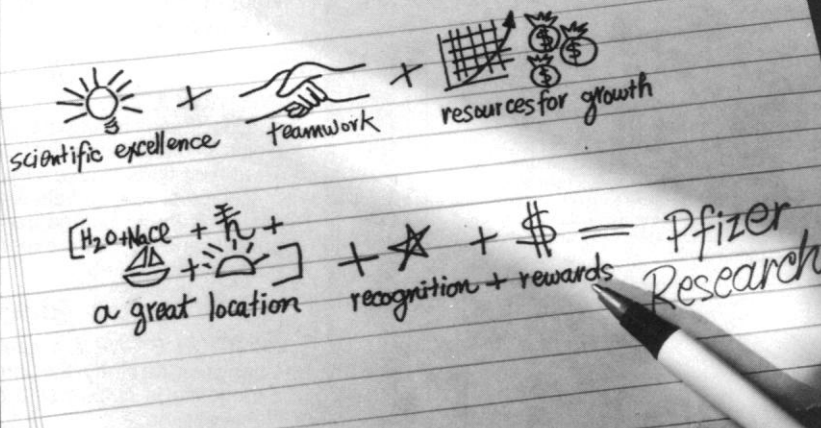 + + $ $ $
scientific excellence teamwork resources for growth
[H2O+NaCl + +
+ ] + + $ = Pfizer
a great location recognition + rewards Research